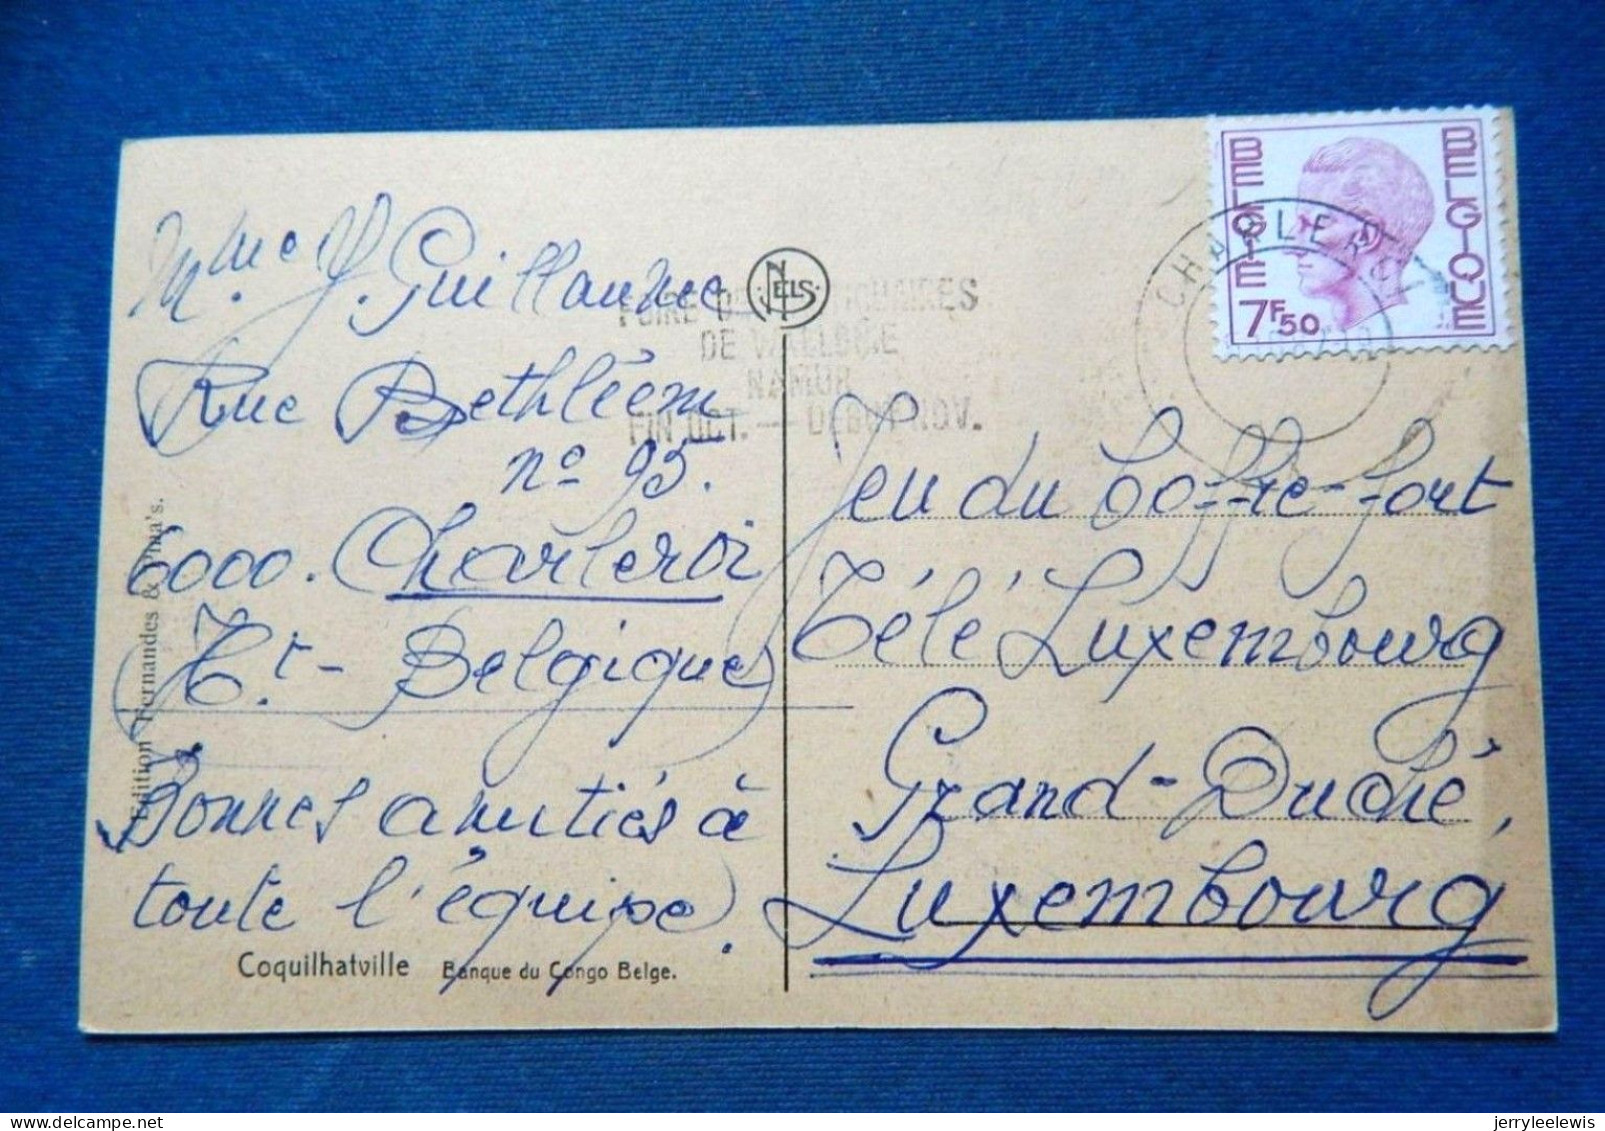 Mme J. Guillaume
Rue Bethléem
n° 95.
6000. Charleroi
Ht - Belgique
Bonnes amitiés à
toute l'équipe.
Coquilhatville Banque du Congo Belge.
Edition Fernandes &
NELS
DE WALLONIE
NAMUR
FIN OCT. — DEBUT NOV.
CHARLEROI
BELGIE BELGIQUE
7F50
Jeu du Coffre-fort
Télé Luxembourg
Grand-Duché,
Luxembourg
jerryleelewis